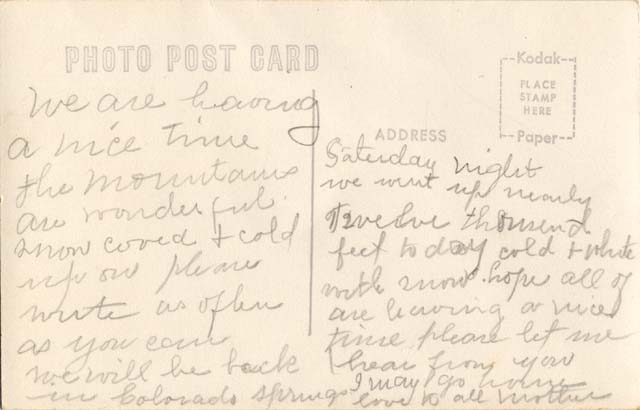 PHOTO POST CARD
we are having
a nice time
the mountains
are wonderful.
snow coved + cold
up on please
write as often
as you can
we will be back
in Colorado Springs
Kodak
PLACE
STAMP
HERE
Paper
ADDRESS
Saturday night
we went up nearly
Twelve thousend
feet to day cold + white
with snow. hope all of
are having a nice
time please let me
hear from you
I may go home
love to all mother